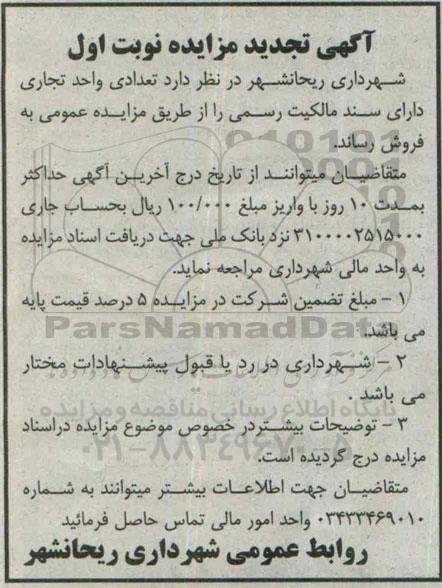 آگهی تجدید مزایده نوبت اول
شهرداری ریحانشهر در نظر دارد تعدادی واحد تجاری
دارای سند مالکیت رسمی را از طریق مزایده عمومی به
فروش رساند.
متقاضیان میتوانند از تاریخ درج آخرین آگهی حداکثر
بمدت ۱۰ روز با واریز مبلغ ۱۰۰/۰۰۰ ریال بحساب جاری
۳۱۰۰۰۰۲۵۱۵۰۰۰ نزد بانک ملی جهت دریافت اسناد مزایده
به واحد مالی شهرداری مراجعه نماید.
۱ - مبلغ تضمین شرکت در مزایده ۵ درصد قیمت پایه
می باشد.
ParsNamadData
۲ - شهرداری در رد یا قبول پیشنهادات مختار
می باشد .
پایگاه اطلاع رسانی مناقصه و مزایده
۳ - توضیحات بیشتر در خصوص موضوع مزایده در اسناد
۰۲۱-۸۸۳۴۹۶۷۰-۵
مزایده درج گردیده است.
متقاضیان جهت اطلاعات بیشتر میتوانند به شماره
۰۳۴۳۳۴۶۹۰۱۰ واحد امور مالی تماس حاصل فرمائید
روابط عمومی شهرداری ریحانشهر